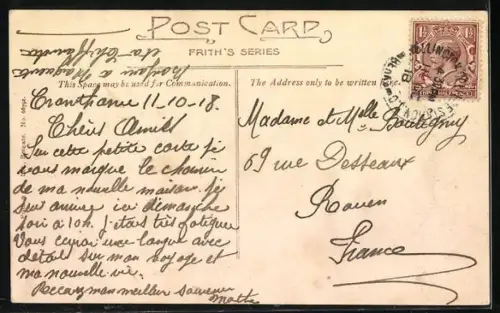 POST CARD
FRITH'S SERIES
Bonjour à Maguerite
This Space may be used for Communication.
The Address only to be written here.
Crowthorne 11-10-18.
Chères Amies
Sur cette petite carte je
vous marque le chemin
de ma nouvelle maison. Je
suis arrivée ici dimanche
soir à 10h. J'étais très fatiguée
Vous ecrirai une longue avec
détails sur mon voyage et
ma nouvelle vie.
Recevez mon meilleur souvenir
Marthe
Madame et Melle
69 rue Desseaux
Rouen
France